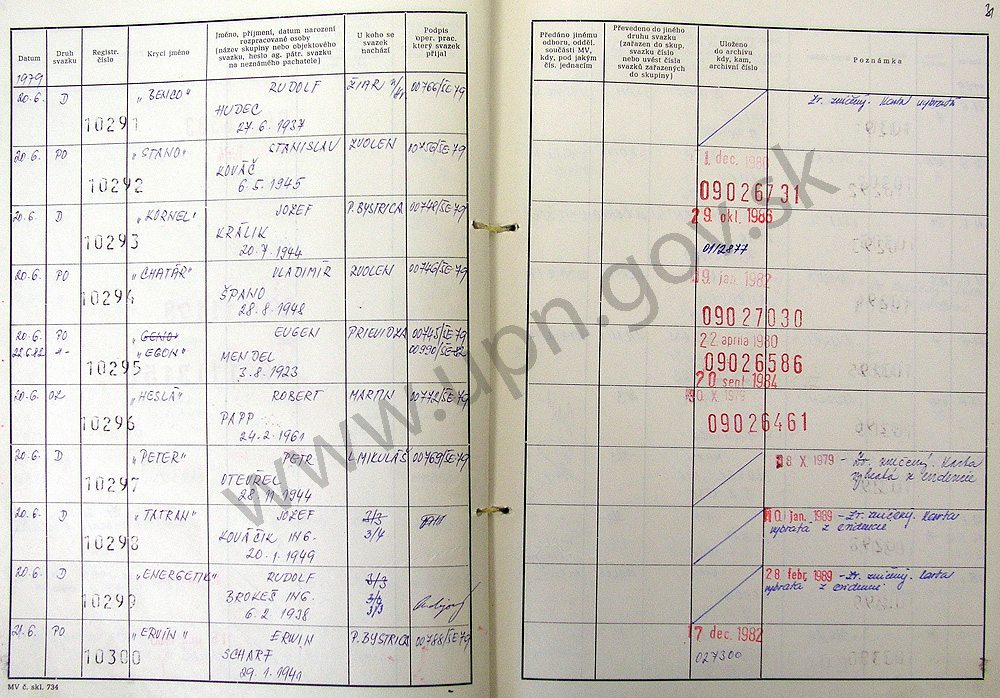 21
Datum
Druh svazku
Registr. číslo
Krycí jméno
Jméno, příjmení, datum narození
rozpracované osoby
(název skupiny nebo objektového
svazku, heslo ag. pátr. svazku
na neznámého pachatele)
U koho se
svazek
nachází
Podpis
oper. prac.
který svazek
přijal
Předáno jinému
odboru, odděl.
součásti MV,
kdy, pod jakým
čís. jednacím
Převedeno do jiného
druhu svazku
(zařazen do skup.
svazku číslo
nebo uvést čísla
svazků zařazených
do skupiny)
Uloženo
do archivu
kdy, kam,
archivní číslo
Poznámka
1979
20.6. D 10291 „BENCO" RUDOLF ŽIAR n/ 00766/SE-79
HUDEC
27.6.1937
Zv. zničený. Karta vybratá
20.6. PO 10292 „STANO" STANISLAV ZVOLEN 00756/SE-79
KOVÁČ
6.5.1945
1. dec. 1980
09026731
20.6. D 10293 „KORNEL" JOZEF P. BYSTRICA 00748/SE-79
KRÁLIK
20.7.1944
29. okt. 1986
01/2877
20.6. PO 10294 „CHATÁR" VLADIMÍR ZVOLEN 00746/SE-79
ŠPANO
28.8.1948
19. jan. 1982
09027030
20.6. PO 10295 „GENO" EUGEN PRIEVIDZA 00745/SE-79
22.6.82 -"- „EGON" MENDEL 00990/SE-82
3.8.1923
22. apríla 1980
09026586
20 sept. 1984
20.6. 10296 „HESLÁ" ROBERT MARTIN 00772/SE-79
PAPP
24.2.1961
30. X. 1979
09026461
20.6. D 10297 „PETER" PETR L. MIKULÁŠ 00769/SE-79
OTEVŘEL
28.11.1944
X 1979 - Zv. zničený. Karta
vybratá z evidencie
20.6. D 10298 „TATRAN" JOZEF 3/3
KOVÁČIK ING. 3/4
20.1.1949
10. jan. 1989 - Zv. zničený. Karta
vybratá z evidencie
20.6. D 10299 „ENERGETIK" RUDOLF 3/3
BROKEŠ ING.
6.2.1938 3/3
28 febr. 1989 - Zv. zničený. Karta
vybratá z evidencie
21.6. PO 10300 „ERVÍN" ERWIN P. BYSTRICA 00788/SE-79
SCHARF
29.1.1941
17 dec. 1982
027300
MV č. skl. 734
www.upn.gov.sk